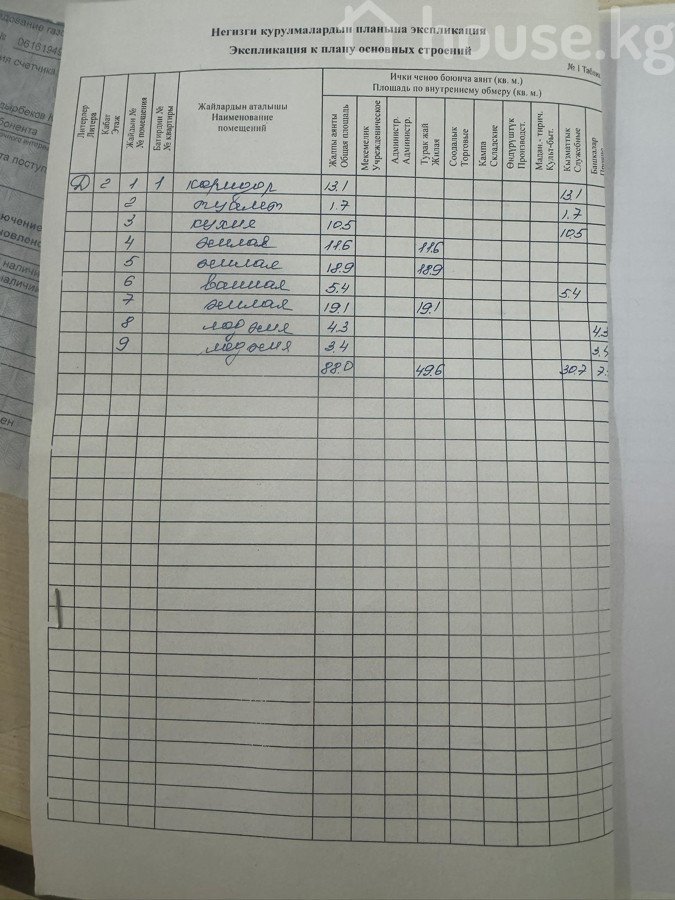 house.kg
Негизги курулмалардын планына экспликация
Экспликация к плану основных строений
№ 1 Табли
Литерлер
Литера
Кабат
Этаж
Жайдын №
№ помещения
Батирдин №
№ квартиры
Жайлардын аталышы
Наименование
помещений
Ички ченөө боюнча аянт (кв. м.)
Площадь по внутреннему обмеру (кв. м.)
Жалпы аянты
Общая площадь
Мекемелик
Учрежденическое
Администр.
Администр.
Турак жай
Жилая
Соодалык
Торговые
Кампа
Складские
Өндүрүштүк
Производст.
Мадан.- тирич.
Культ-быт.
Кызматтык
Служебные
Башкалар
Д 2 1 1 коридор 13.1 13.1
2 туалет 1.7 1.7
3 кухня 10.5 10.5
4 жилая 11.6 11.6
5 жилая 18.9 18.9
6 ванная 5.4 5.4
7 жилая 19.1 19.1
8 лоджия 4.3 4.3
9 лоджия 3.4 3.4
88.0 49.6 30.7 7.
дование газо
№ 06161949
ия счетчика
дырбеков К
бонента
та поступ
ючение
овлено
наличи
наличии
ен